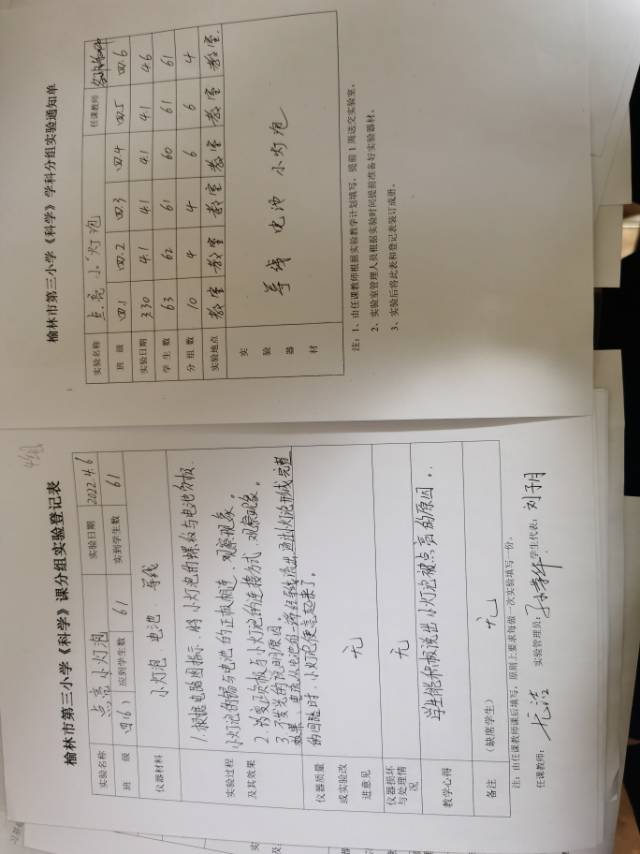 榆林市第三小学《科学》学科分组实验通知单
实验名称 点亮小灯泡 任课教师
班级 四.1 四.2 四.3 四.4 四.5 四.6
实验日期 3.30 4.1 4.1 4.1 4.1 4.6
学生数 63 62 61 60 61 61
分组数 10 4 4 6 6 4
实验地点 教室 教室 教室 教室 教室 教室
实验器材 导线 电池 小灯泡
注：1、由任课教师根据实验教学计划填写，提前1周送交实验室。
2、实验室管理人员根据实验时间提前准备好实验器材。
3、实验后将此表和登记表装订成册。
榆林市第三小学《科学》课分组实验登记表
实验名称 点亮小灯泡 实验日期 2022.4.6
班级 四(6) 应到学生数 61 实到学生数 61
仪器材料 小灯泡、电池、导线
实验过程及其效果
1.根据电路图指示，将小灯泡的螺纹与电池负极，
小灯泡的锡与电池的正极相连，观察现象。
2.改变正负极与小灯泡的连接方式，观察现象。
3.不发光的说明原因。
效果：电流从电池的一端经导线流出，通过灯泡形成完整
的回路时，小灯泡便亮起来了。
仪器质量或实验改进意见 无
仪器损坏与处理情况 无
教学心得 学生能积极说出小灯泡被点亮的原因。
备注（缺席学生） 无
注：由任课教师课后填写，原则上要求每做一次实验填写一份。
任课教师： 实验管理员： 学生代表：刘子月